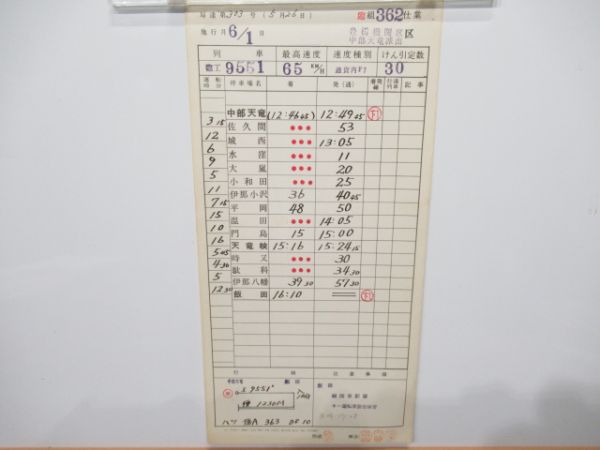 局達第373号 (5月26日) 組362仕業
施行月 6/1 日 豊橋機関区 区
中部天竜派出
列車 最高速度 速度種別 けん引定数
臨工 9551 65 KM/H 通貨丙F7 30
運転時分 停車場名 着 発(通) 着発線 行違列車 記事
中部天竜 (12:46 45) 12:49 45
3 15 佐久間 ••• 53
12 城西 ••• 13:05
6 水窪 ••• 11
9 大嵐 ••• 20
5 小和田 ••• 25
11 伊那小沢 36 40 45
7 15 平岡 48 50
15 温田 ••• 14:05
10 門島 15 15:00
16 天竜峡 15:16 15:24 15
5 45 時又 ••• 30
4 30 駄科 ••• 34 30
5 伊那八幡 39 30 57 30
12 30 飯田 16:10 ══
行路 注意事項
飯田 飯田
9551
1230M
363